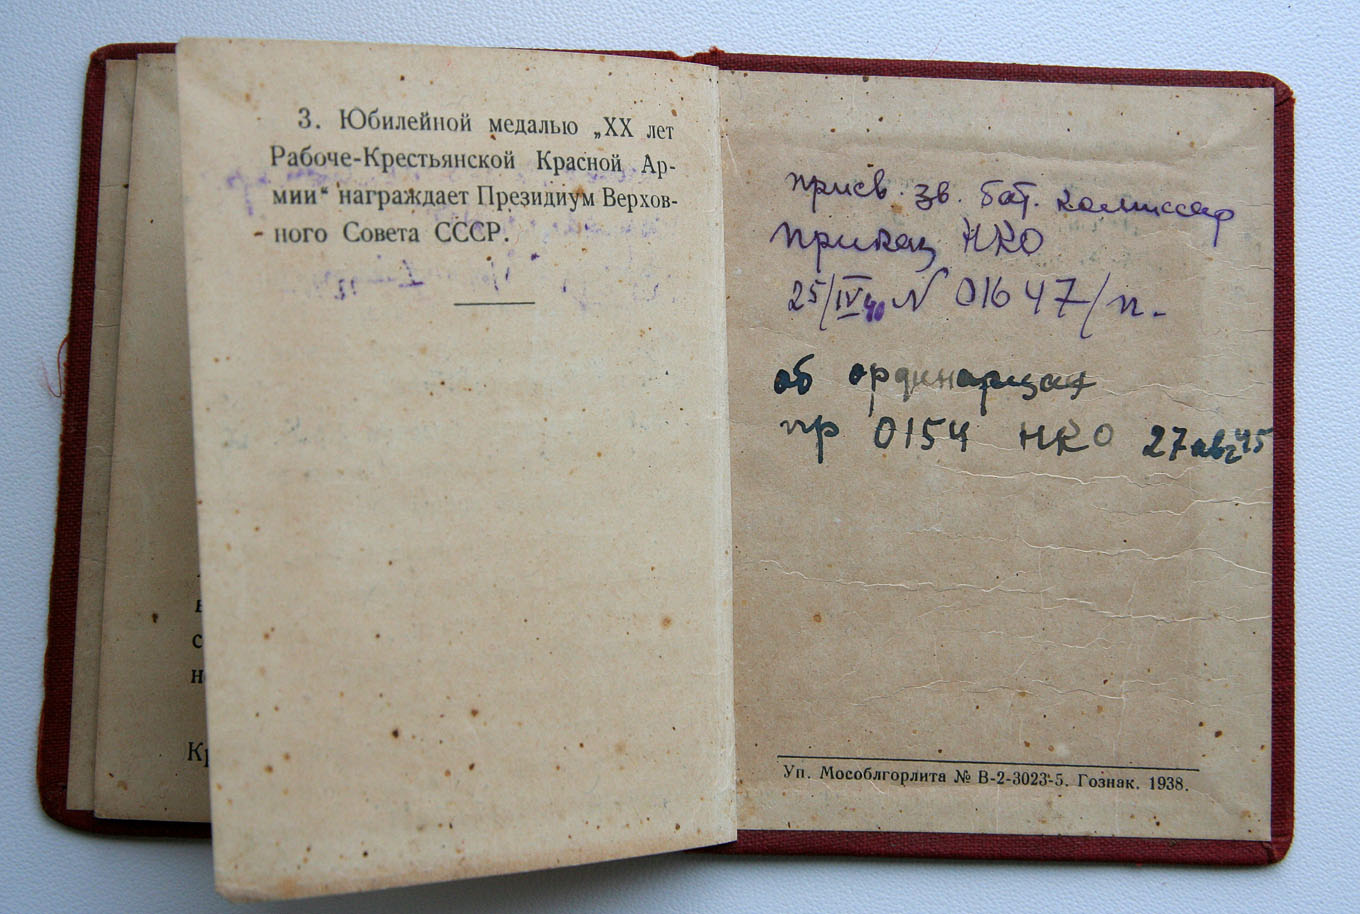 3. Юбилейной медалью „XX лет
Рабоче-Крестьянской Красной Ар-
мии“ награждает Президиум Верхов-
ного Совета СССР.
с
н
Кр
присв. зв. бат. комиссар
приказ НКО
25/IV 40 N 01647/п.
об ординарцах
пр 0154 НКО 27 авг 45
Уп. Мособлгорлита № В-2-3023-5. Гознак. 1938.